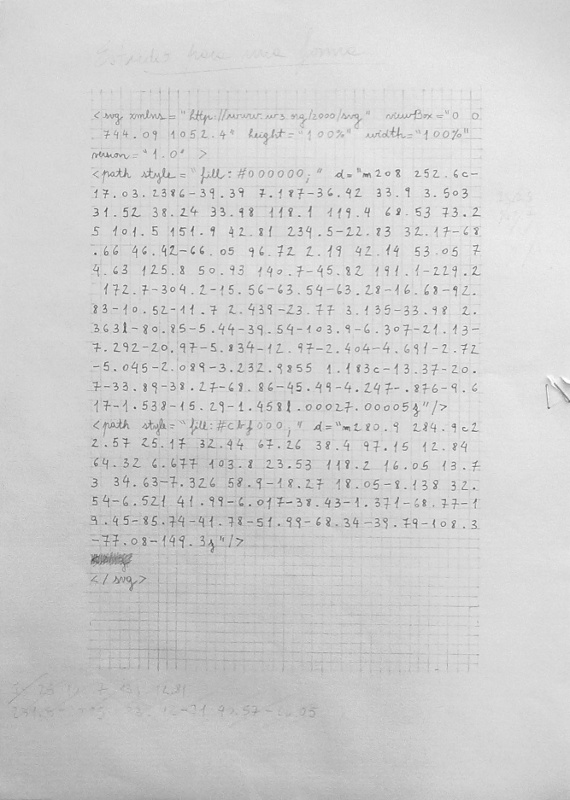 Estudio para una forma
<svg xmlns="http://www.w3.org/2000/svg" viewBox="0 0
744.09 1052.4" height="100%" width="100%"
version="1.0" >
<path style="fill:#000000;" d="m208 252.6c-
17.03.2386-39.39 7.187-36.42 33.9 3.503
31.52 38.24 33.98 118.1 119.4 68.53 73.2
5 101.5 151.9 42.81 234.5-22.83 32.17-68
.66 46.42-66.05 96.72 2.19 42.14 53.05 7
4.63 125.8 50.93 140.7-45.82 191.1-229.2
172.7-304.2-15.56-63.54-63.28-16.68-92.
83-10.52-11.7 2.439-23.77 3.135-33.98 2.
363l-80.85-5.44-39.54-103.9-6.307-21.13-
7.292-20.97-5.834-12.97-2.404-4.691-2.72
-5.045-2.089-3.232.9855 1.183c-13.37-20.
7-33.89-38.27-68.86-45.49-4.247-.876-9.6
17-1.538-15.29-1.458l.00027.00005z"/>
<path style="fill:#cbf000;" d="m280.9 284.9c2
2.57 25.17 32.94 67.26 38.4 97.15 12.84
64.32 6.677 103.8 23.53 118.2 16.05 13.7
3 34.63-7.326 58.9-18.27 18.05-8.138 32.
54-6.521 41.99-6.017-38.43-1.371-68.77-1
9.45-85.74-41.78-51.99-68.34-39.79-108.3
-77.08-149.3z"/>
</svg>